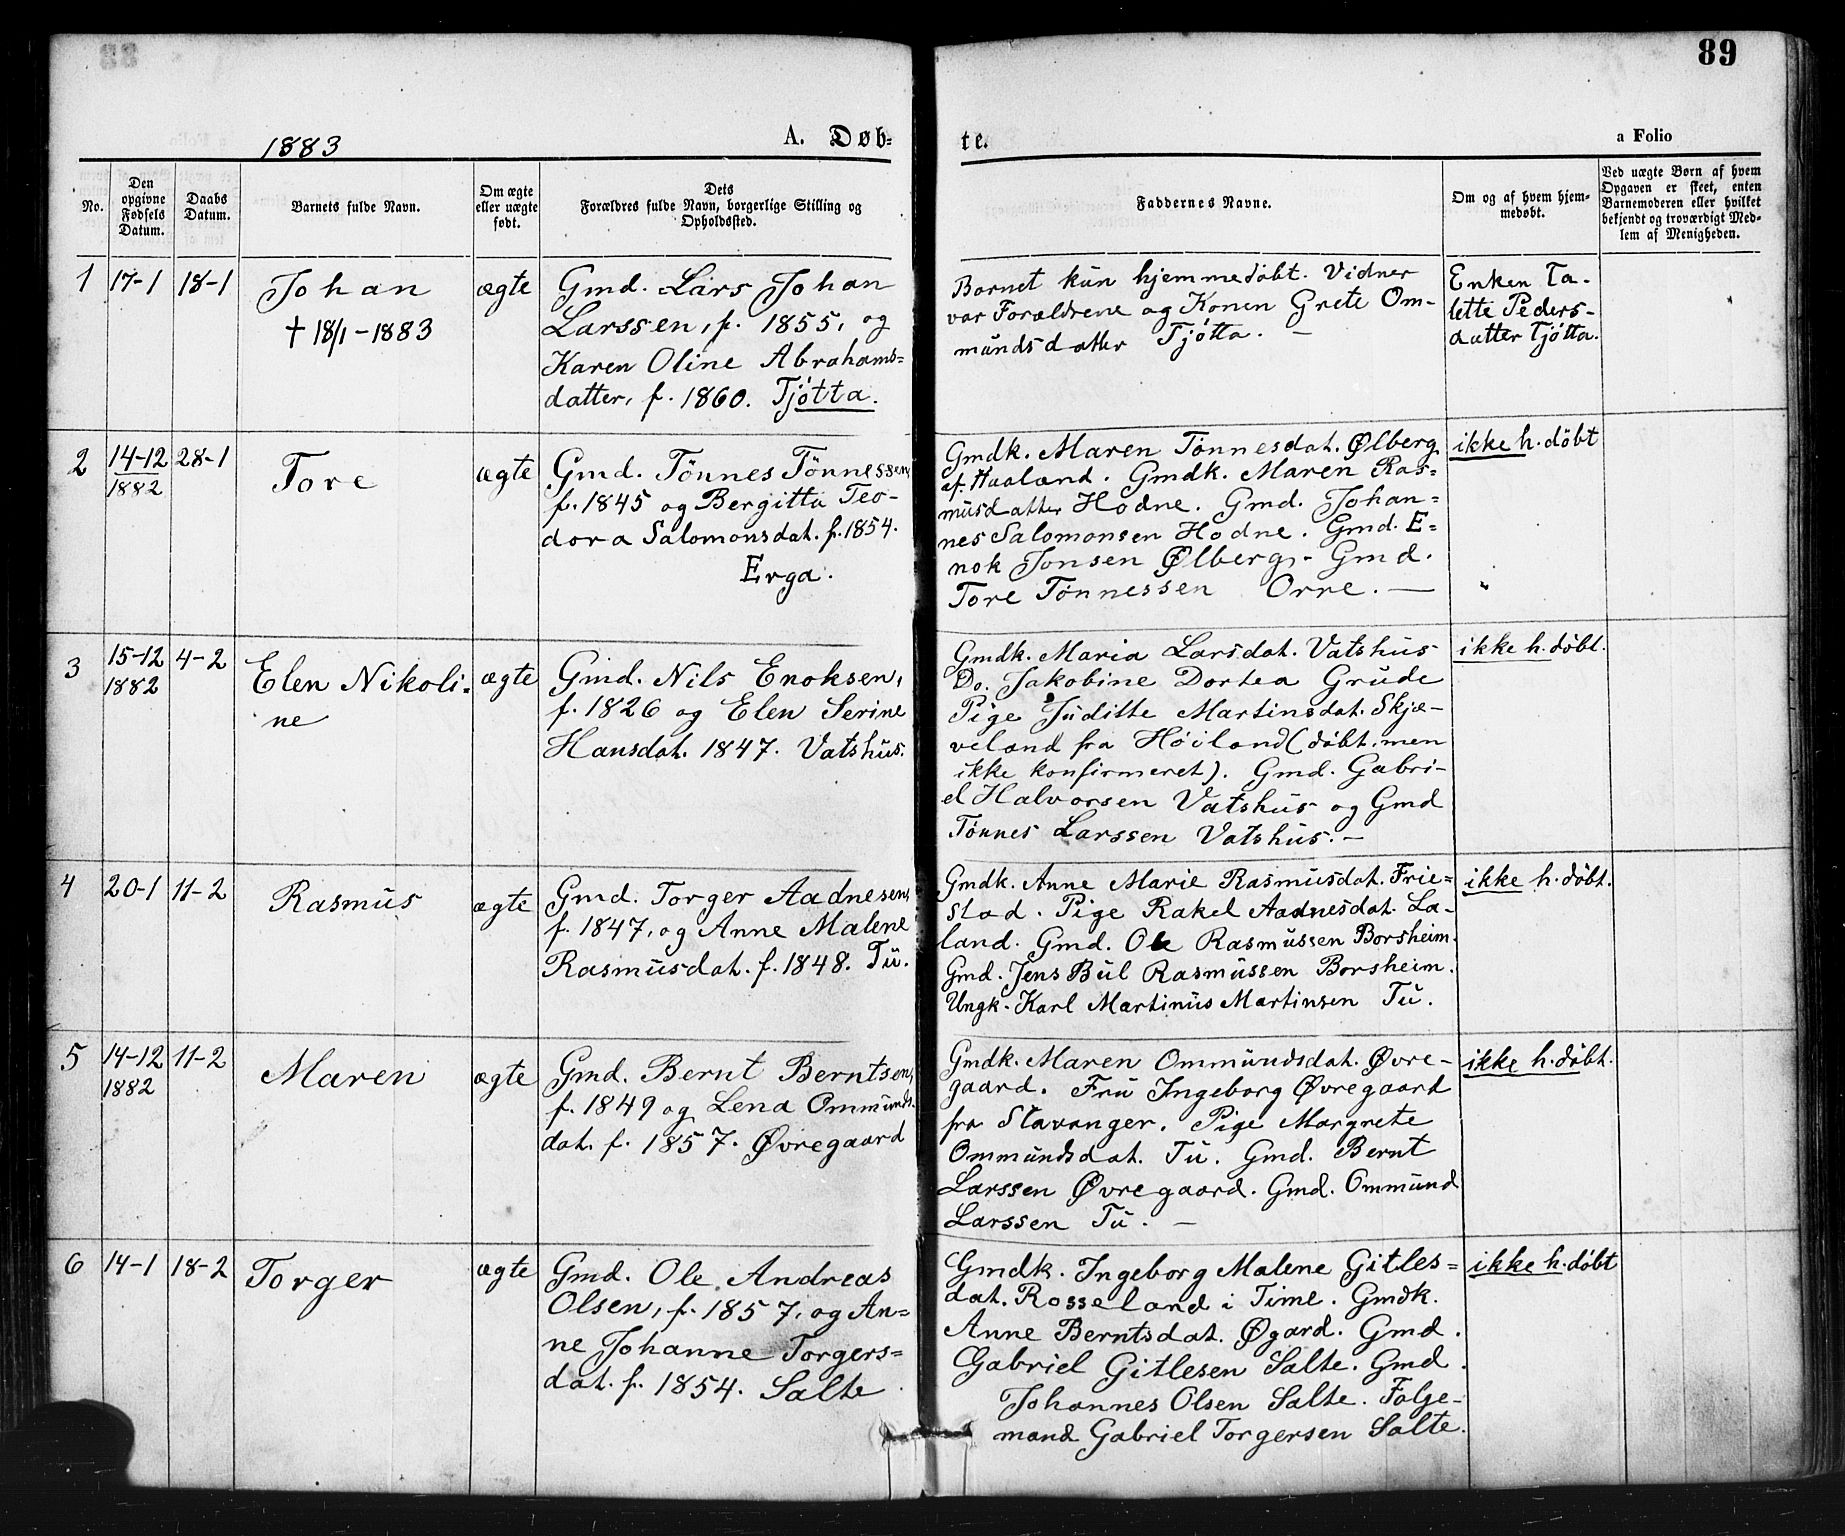 89
1883
A. Døb-
te.
a Folio
No.
Den
opgivne
Fødsels
Datum.
Daabs
Datum.
Barnets fulde Navn.
Om ægte
eller uægte
født.
Dets
Forældres fulde Navn, borgerlige Stilling og
Opholdssted.
Faddernes Navne.
Om og af hvem hjem-
medøbt.
Ved uægte Børn af hvem
Opgaven er skeet, enten
Barnemoderen eller hvilket
bekjendt og troværdigt Med-
lem af Menigheden.
1
17-1
18-1
Johan
† 18/1-1883
ægte
Gmd. Lars Johan
Larssen, f. 1855, og
Karen Oline Abrahams=
datter, f. 1860. Tjøtta.
Barnet kun hjemmedøbt. Vidner
var Forældrene og Konen Grete Om-
mundsdatter Tjøtta. –
Enken Ta-
lette Peders-
datter Tjøtta.
2
14-12
1882
28-1
Tore
ægte
Gmd. Tönnes Tönnessen,
f. 1845 og Bergitta Teo-
dora Salomonsdat. f. 1854.
Erga.
Gmdk. Maren Tönnesdat. Ølberg
af Haaland. Gmdk. Maren Ras=
musdatter Hodne. Gmd. Johan=
nes Salomonsen Hodne. Gmd. E=
nok Jonsen Ølberg. - Gmd.
Tore Tönnessen Orre. —
ikke h. döbt
"
3
15-12
1882
4-2
Elen Nikoli-
ne
ægte
Gmd. Nils Enoksen,
f. 1826 og Elen Serine
Hansdat. 1847. Vatshus.
Gmdk. Maria Larsdat. Vatshus
Do. Jakobine Dortea Grude
Pige Juditte Martinsdat. Skjæ-
veland fra Höiland (döbt, men
ikke konfirmeret). Gmd. Gabri-
el Halvorsen Vatshus og Gmd
Tönnes Larssen Vatshus. –
ikke h. döbt.
4
20-1
11-2
Rasmus
ægte
Gmd. Torger Aadnesen,
f. 1847, og Anne Malene
Rasmusdat. f. 1848. Tu.
Gmdk. Anne Marie Rasmusdat. Frie=
stad. Pige Rakel Aadnesdat. La-
land. Gmd. Ole Rasmussen Borsheim.
Gmd. Jens Bul Rasmussen Borsheim.
Ungk. Karl Martinus Martinsen Tu.
ikke h. döbt.
5
14-12
1882
11-2
Maren
ægte
Gmd. Bernt Berntsen,
f. 1849 og Lena Ommunds-
dat. f. 1857. Øvregaard
Gmdk. Maren Ommundsdat. Øvre-
gaard. Fru Ingeborg Øvregaard
fra Stavanger. Pige Margrete
Ommundsdat. Tu. Gmd. Bernt
Larssen Øvregaard. Gmd. Ommund
Larssen Tu. –
ikke h. döbt.
6
14-1
18-2
Torger
ægte
Gmd. Ole Andreas
Olsen, f. 1857, og An=
ne Johanne Torgers=
dat. f. 1854. Salte
Gmdk. Ingeborg Malene Gitles=
dat. Rosseland i Time. Gmdk.
Anne Berntsdat. Øgard. Gmd.
Gabriel Gitlesen Salte. Gmd.
Johannes Olsen Salte. Følge-
mand Gabriel Torgersen Salte.
ikke h. döbt